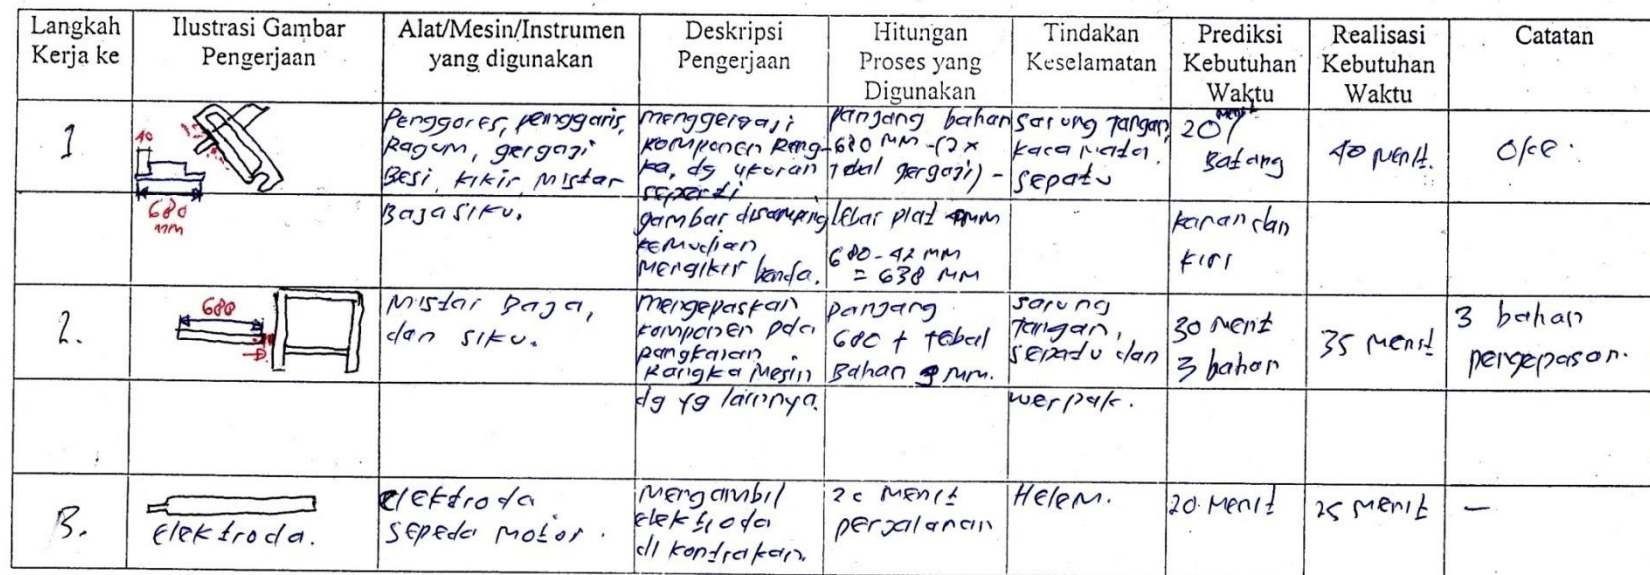 Langkah
Kerja ke
Ilustrasi Gambar
Pengerjaan
Alat/Mesin/Instrumen
yang digunakan
Deskripsi
Pengerjaan
Hitungan
Proses yang
Digunakan
Tindakan
Keselamatan
Prediksi
Kebutuhan
Waktu
Realisasi
Kebutuhan
Waktu
Catatan
1
40
680
mm
Penggores, penggaris,
Ragum, gergaji
Besi, kikir, mistar
Baja siku.
menggergaji
komponen Rang-
ka, dg ukuran
seperti
gambar disamping
kemudian
mengikir benda.
panjang bahan
680 mm - (2 x
tebal gergaji) -
lebar plat mm
680 - 42 mm
= 638 mm
sarung tangan
kaca mata,
sepatu
20 menit/
Batang
kanan dan
kiri
40 menit.
Oke.
2.
680
mistar Baja,
dan siku.
mengepaskan
komponen pda
pangkalan
Rangka Mesin
dg yg lainnya.
panjang
680 + tebal
Bahan mm.
sarung
tangan,
sepatu dan
werpak.
30 menit
3 bahan
35 menit
3 bahan
pengepasan.
3.
Elektroda.
elektroda
sepeda motor.
Mengambil
elektroda
di kontrakan.
20 menit
perjalanan
Helem.
20 menit
25 menit
—